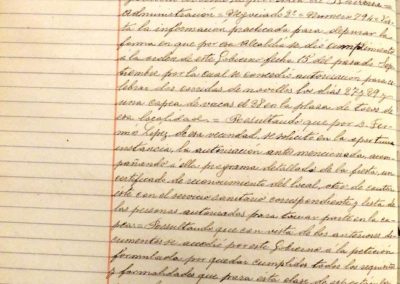 Administracion = Negociado 3º = Numero 794 = Vis-
ta la informacion practicada para depurar la
forma en que por esa Alcaldia se dió cumplimiento
a la orden de este Gobierno fecha 15 del pasado Sep-
tiembre por la cual se concedio autorizacion para ce-
lebrar dos corridas de novillos los dias 27 y 29 y
una capea de vacas el 28 en la plaza de toros de
esa localidad = Resultando que por D. Fer-
min Lopez, de esa vecindad, se solicitó en la oportuna
instancia, la autorizacion antes mencionada, acom-
pañando a ella programa detallado de la fiesta, un
certificado de reconocimiento del local, otro de contar
este con el servicio sanitario correspondiente y lista de
las personas autorizadas para tomar parte en la ca-
pea = Resultando que con vista de los anteriores do-
cumentos se accedio por este Gobierno a la peticion
formulada por quedar cumplidos todos los requisitos
y formalidades que para esta clase de espectaculos